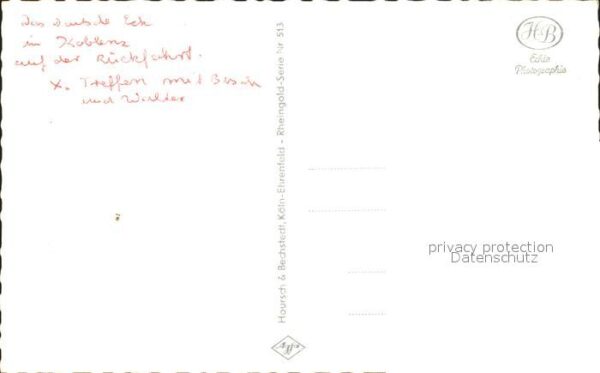 Das Deutsche Eck
in Koblenz
auf der Rückfahrt.
x. Treffen mit
und Walter
Hoursch & Bechstedt, Köln-Ehrenfeld - Rheingold-Serie Nr 513
HB
Echte
Photographie
privacy protection
Datenschutz
Agfa